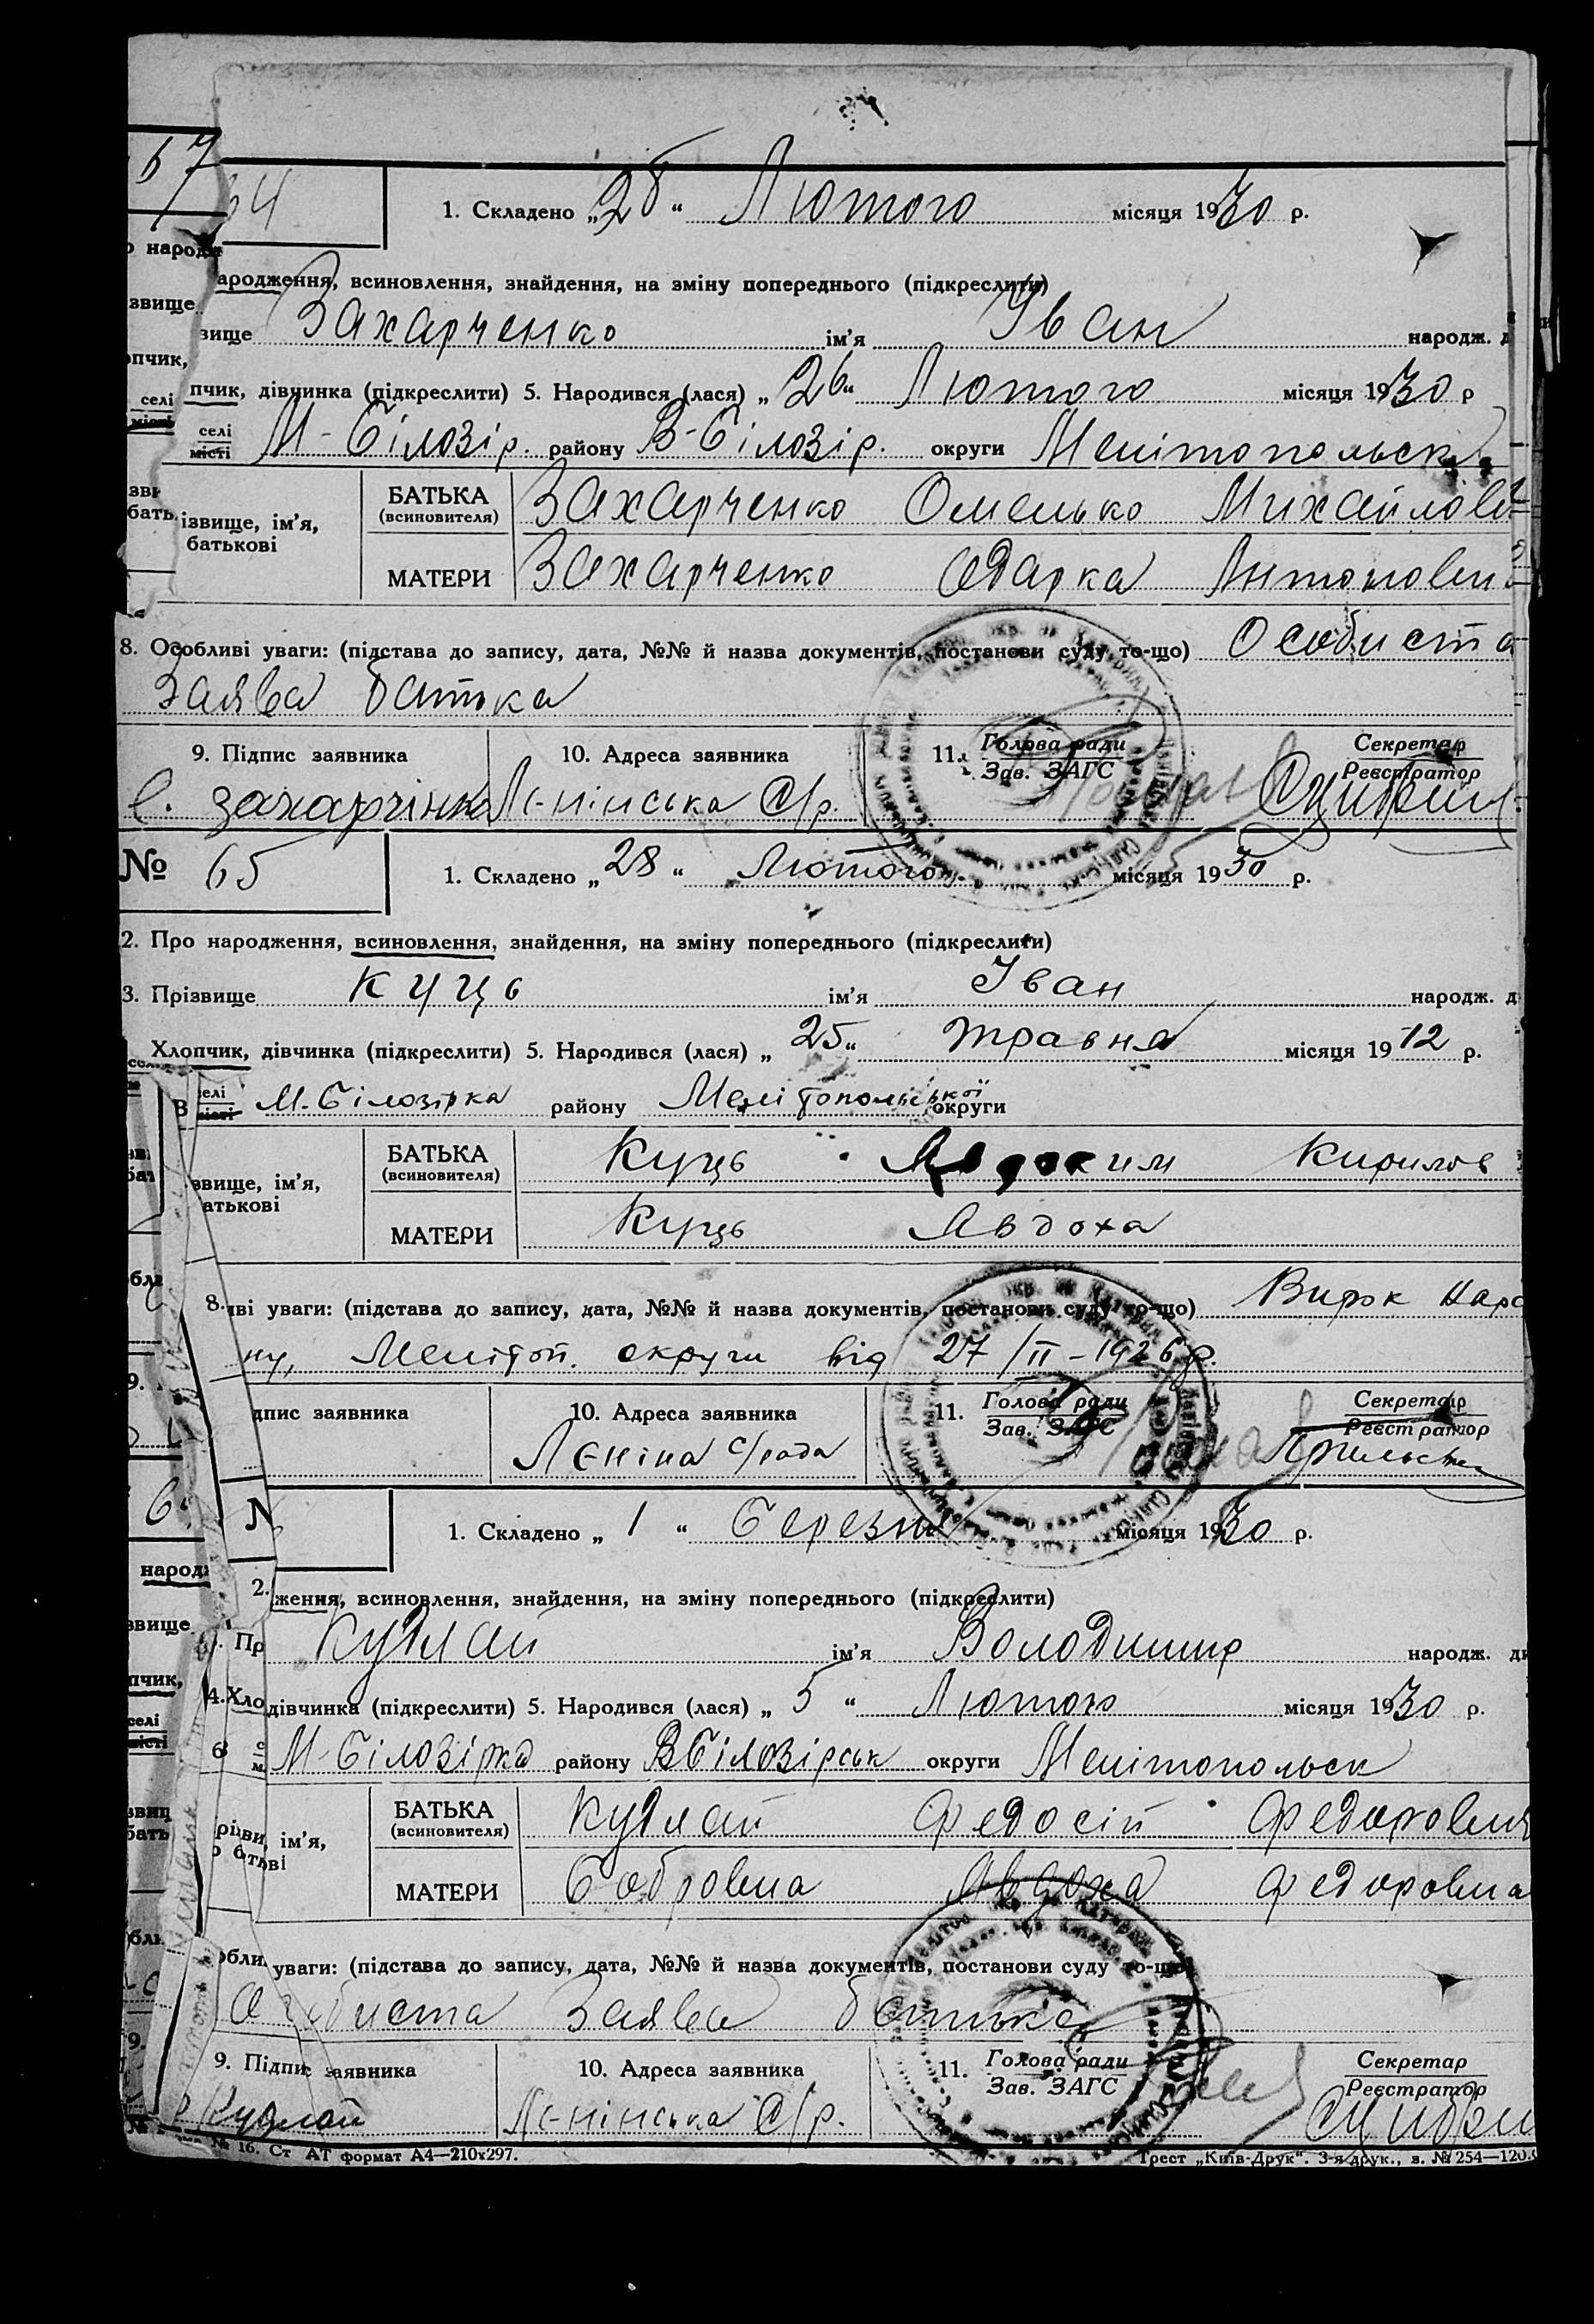 67
64
1. Складено „28“ Лютого місяця 1930 р.
ародження, всиновлення, знайдення, на зміну попереднього (підкреслити)
звище Захарченко ім’я Іван народж. д
пчик, дівчинка (підкреслити) 5. Народився (лася) „26“ Лютого місяця 1930 р
селі місті М-Білозір. району В-Білозір. округи Мелітопольск.
ізвище, ім’я, батькові
БАТЬКА (всиновителя) Захарченко Омелько Михайлови
МАТЕРИ Захарченко Одарка Антоновн
8. Особливі уваги: (підстава до запису, дата, №№ й назва документів, постанови суду то-що) Особиста
Заява батька
9. Підпис заявника 10. Адреса заявника 11. Голова ради Зав. ЗАГС Секретар Реєстратор
О. захарчінко Лєнінська С/р.
№ 65
1. Складено „28“ Лютого місяця 1930 р.
2. Про народження, всиновлення, знайдення, на зміну попереднього (підкреслити)
3. Прізвище Куць ім’я Іван народж. д
Хлопчик, дівчинка (підкреслити) 5. Народився (лася) „25“ травня місяця 1912 р.
В селі місті М. Білозірка району Мелітопольської округи
звище, ім’я, атькові
БАТЬКА (всиновителя) Куць Авдоким Кирилов
МАТЕРИ Куць Авдоха
8. иві уваги: (підстава до запису, дата, №№ й назва документів, постанови суду то-що) Вирок Нар
ну, Меліт оп. округи від 27/II-1926 р.
дпис заявника 10. Адреса заявника 11. Голова ради Зав. ЗАГС Секретар Реєстратор
Лєніна с/рада
N
1. Складено „1“ Березня місяця 1930 р.
2. ження, всиновлення, знайдення, на зміну попереднього (підкреслити)
Пр Кудлай ім’я Володимир народж. ди
4. Хло дівчинка (підкреслити) 5. Народився (лася) „5“ Лютого місяця 1930 р.
6 М-Білозірка району ВБілозірськ округи Мелітопольск
ім’я,
БАТЬКА (всиновителя) Кудлай Федосій Федорович
МАТЕРИ Бобровна Авдоха Федоровна
обли уваги: (підстава до запису, дата, №№ й назва документів, постанови суду то-що)
Особиста Заява батька
9. Підпис заявника 10. Адреса заявника 11. Голова ради Зав. ЗАГС Секретар Реєстратор
Кудлай Лєнінська С/р.
№ 16. Ст АТ формат А4—210х297. Трест „Київ-Друк“. 3-я друк., з. № 254—120.0